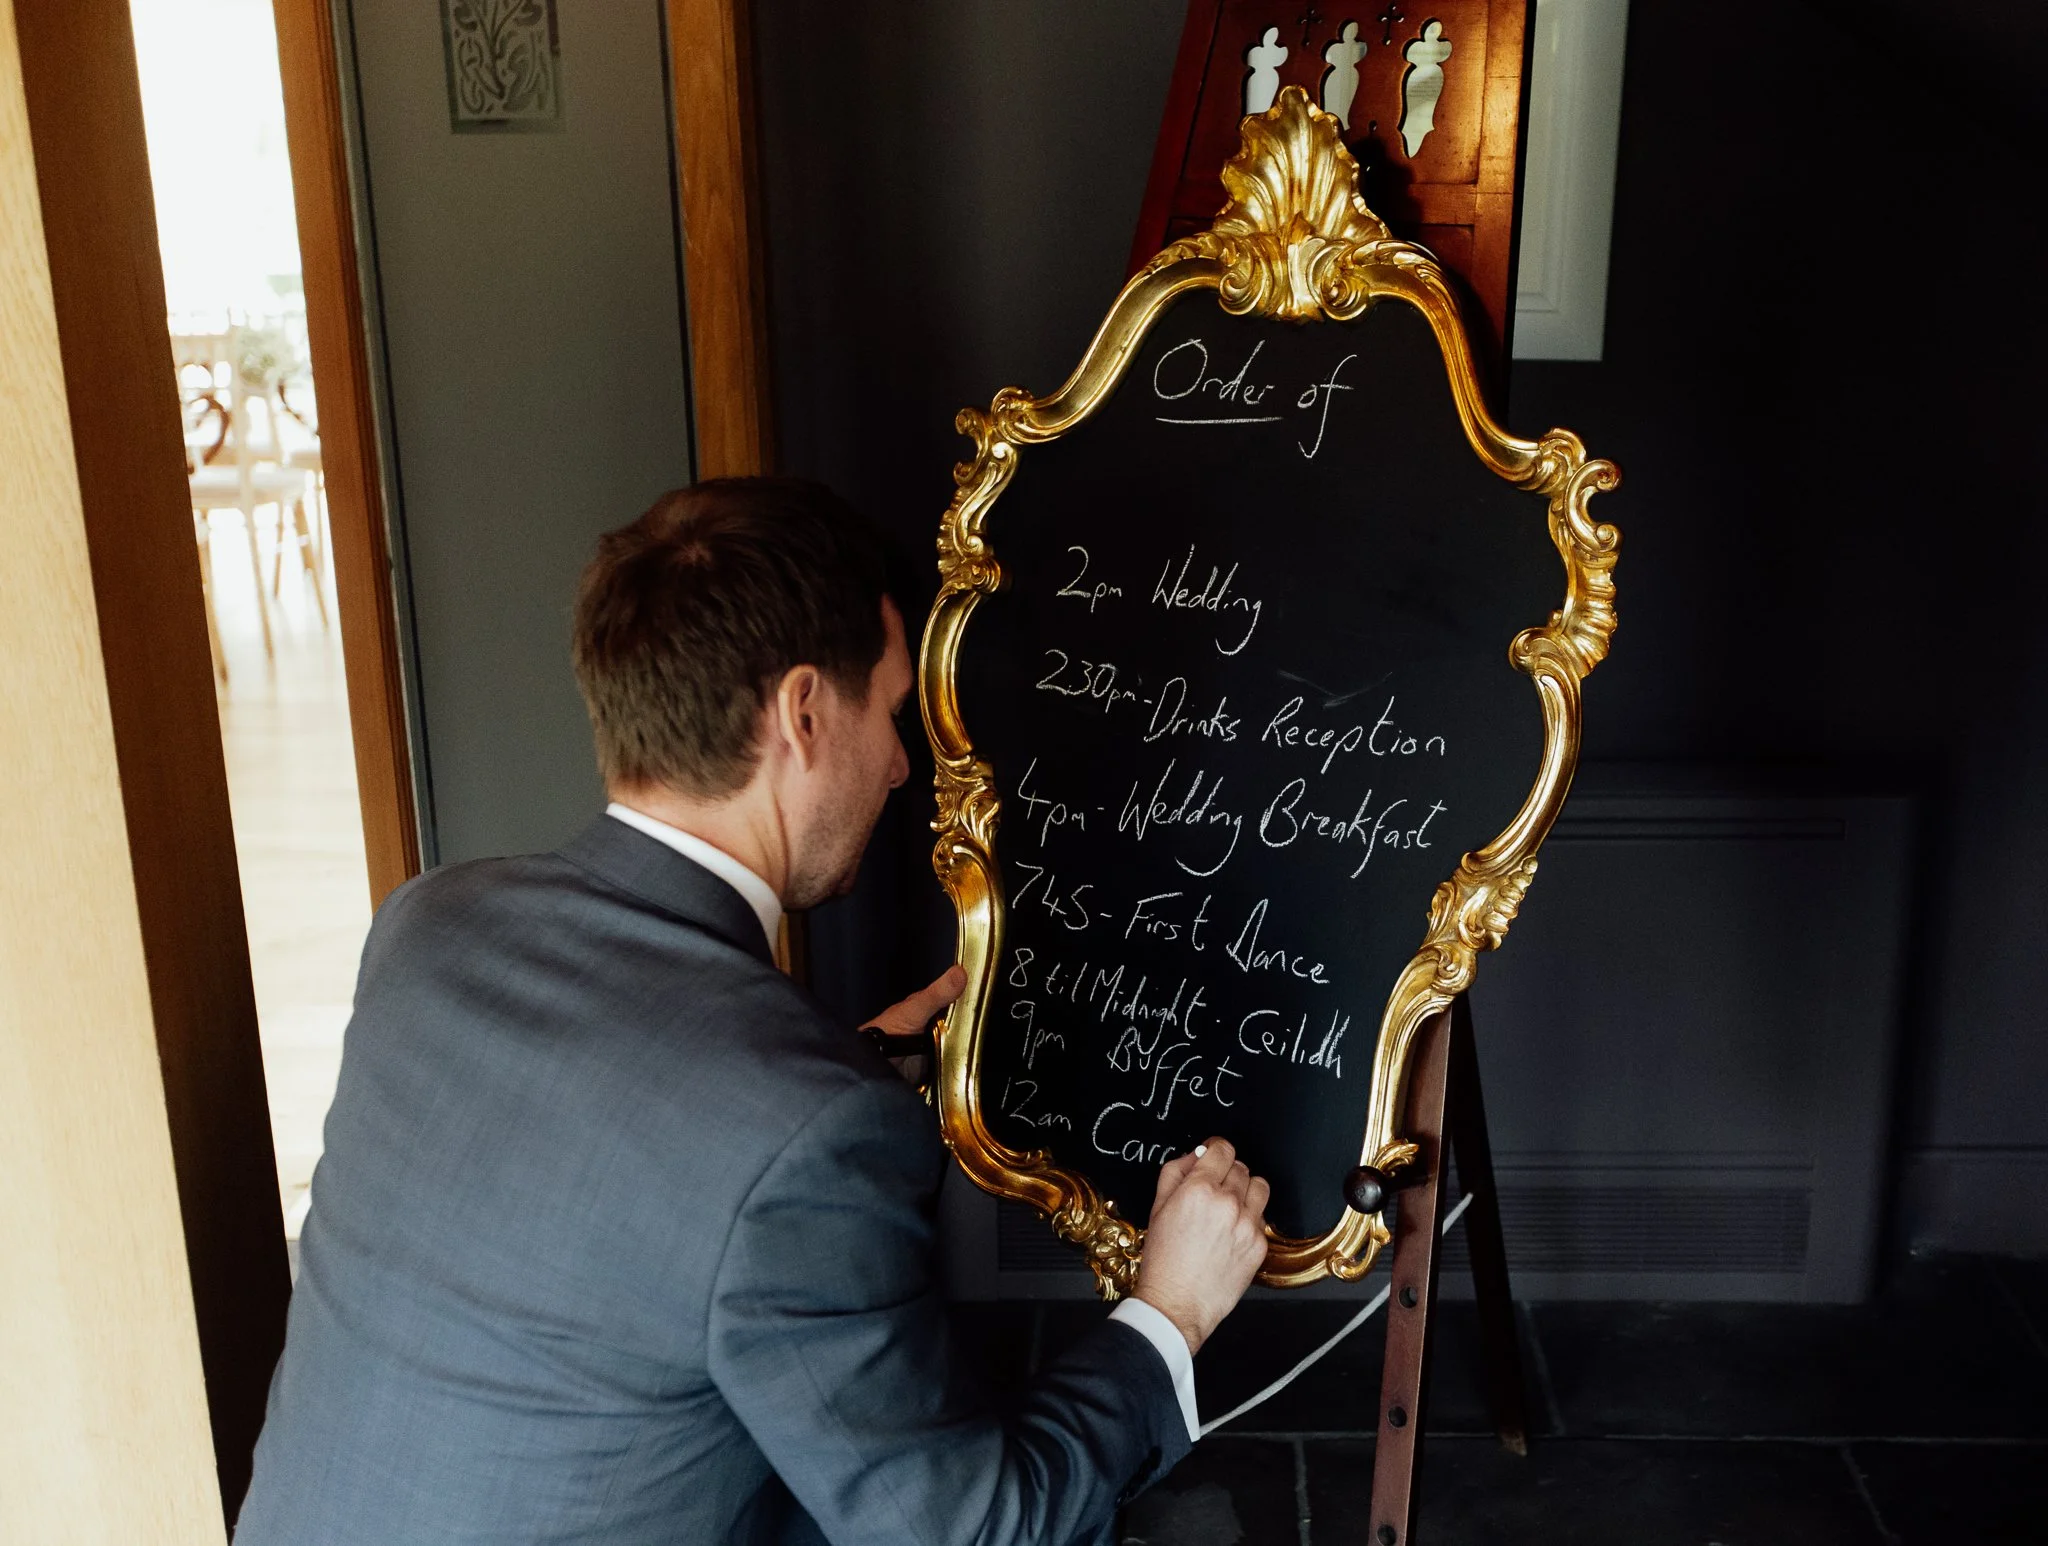 Order of
2pm Wedding
2.30pm - Drinks Reception
4pm - Wedding Breakfast
745 - First Dance
8 til Midnight - Ceilidh
9pm Buffet
12am Carri